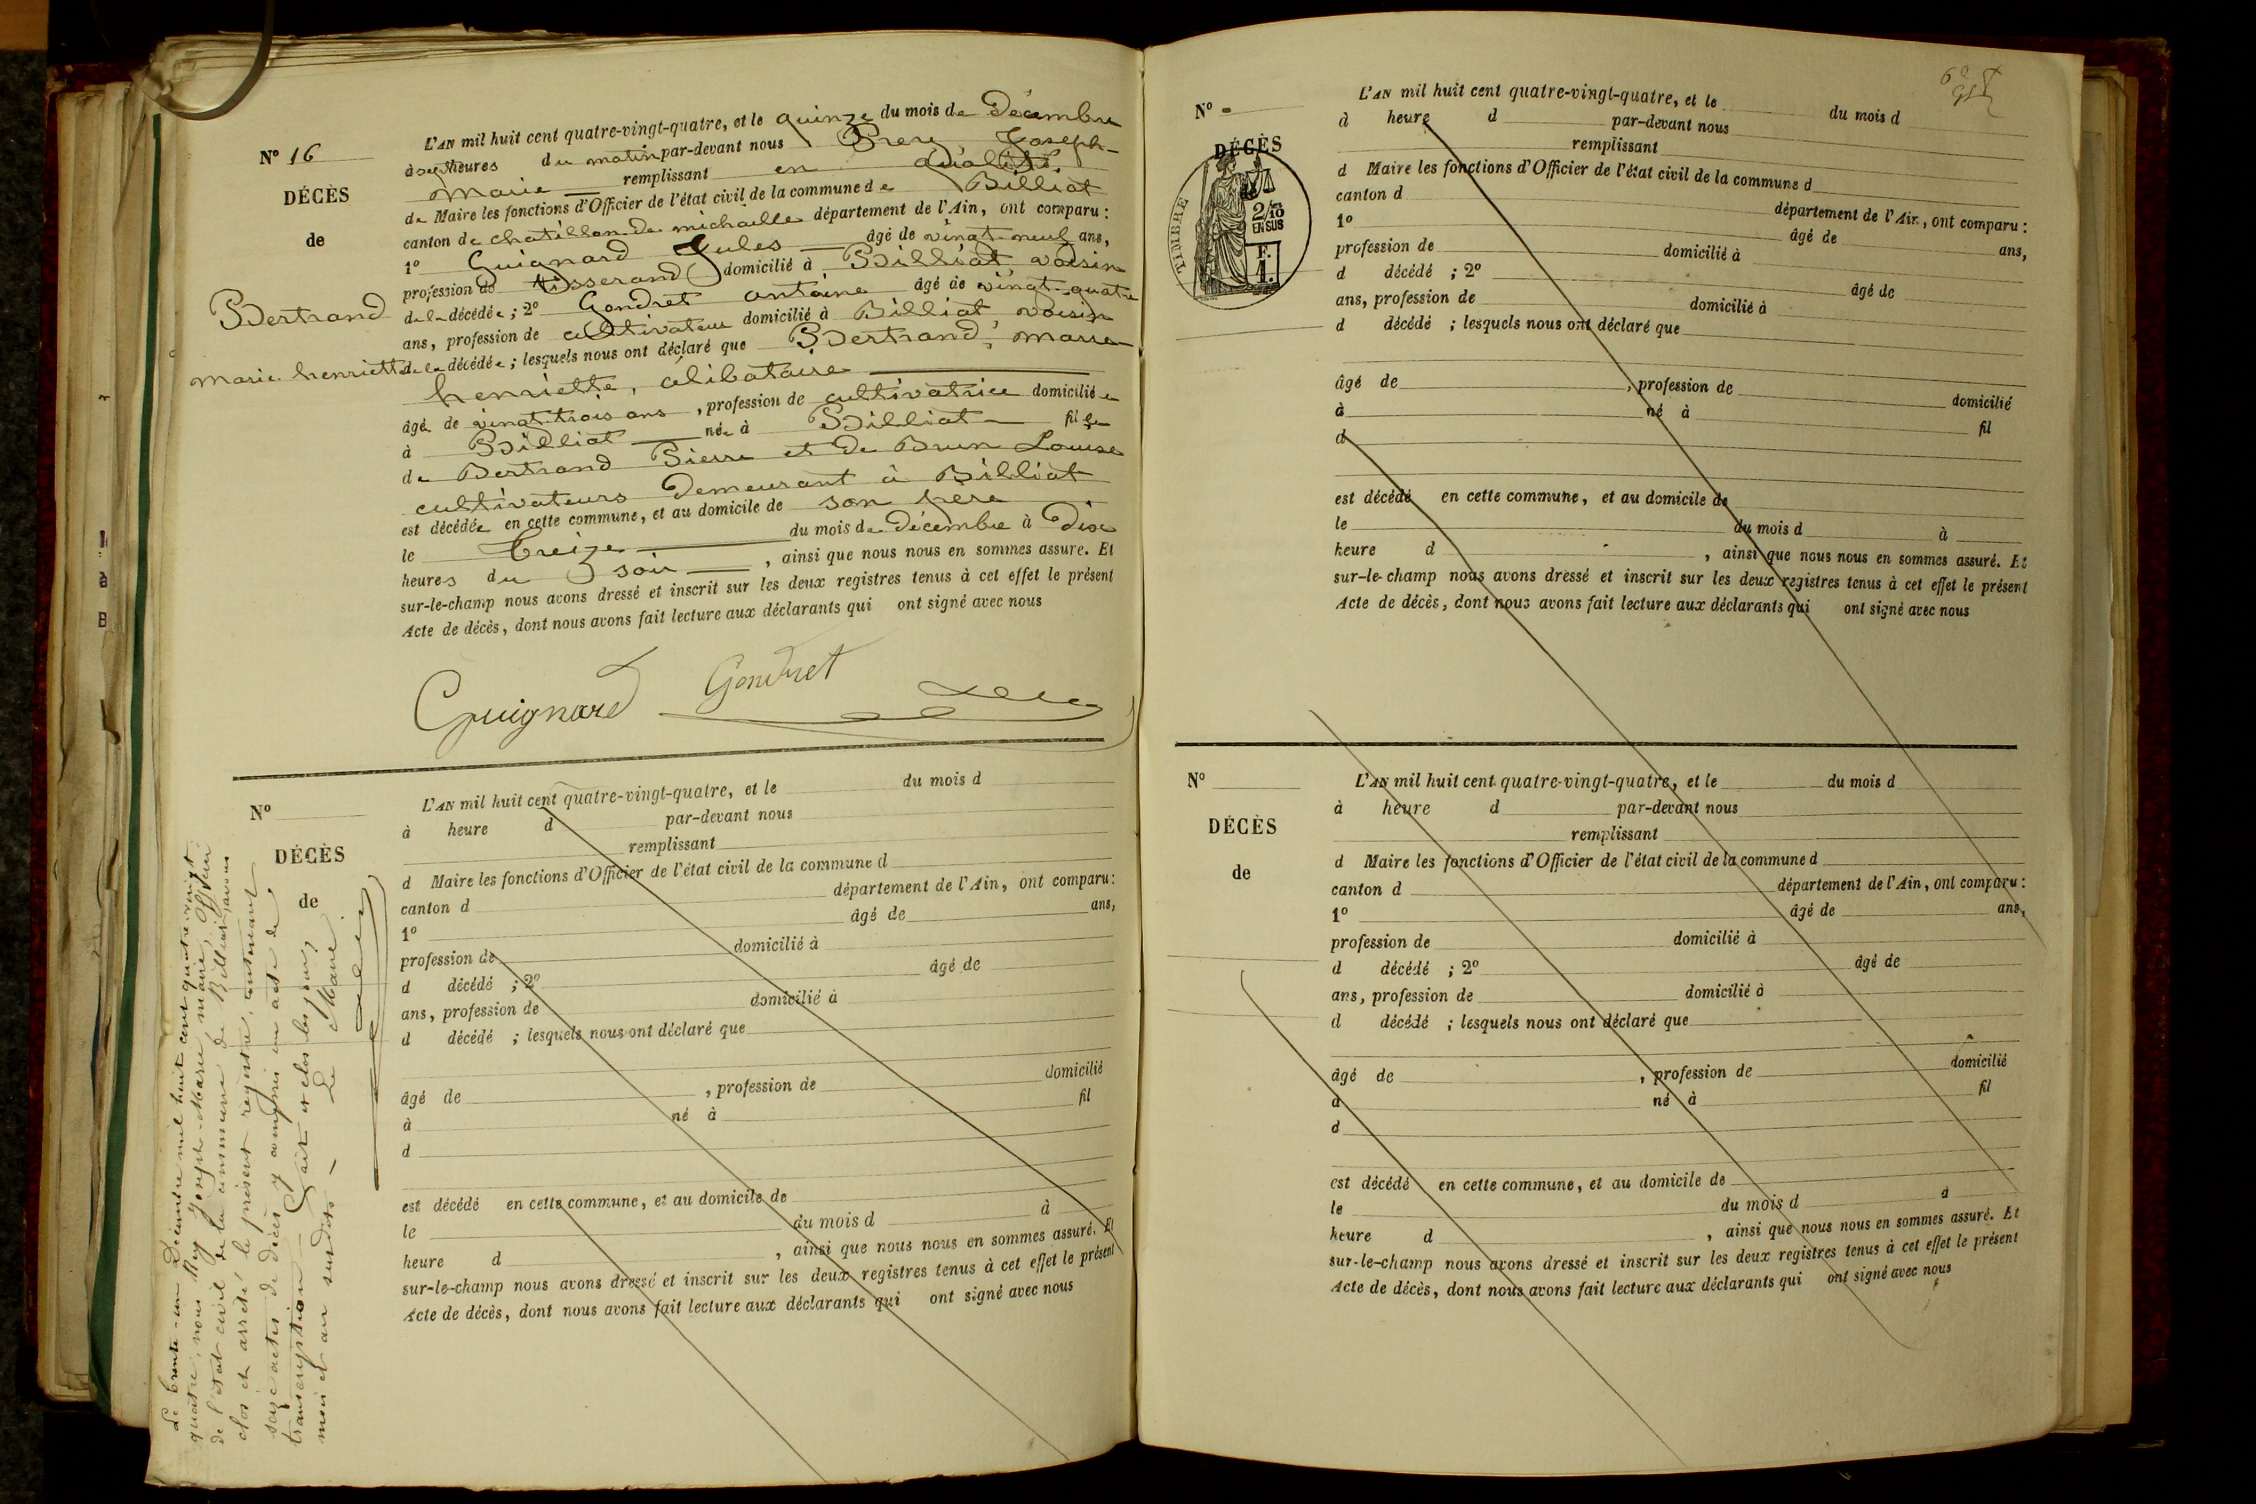 Nº 16
DÉCÈS
de
Bertrand
Marie henriette
L'AN mil huit cent quatre-vingt-quatre, et le quinze du mois de Décembre
à sept heures du matin par-devant nous Joseph-
Marie remplissant en qualité
de Maire les fonctions d'Officier de l'état civil de la commune de Billiat
canton de chatillon de michaille département de l'Ain, ont comparu :
1º Guignard Jules âgé de vingt-neuf ans,
profession de tisserand domicilié à Billiat voisin
de la décédée ; 2º Gondret antoine âgé de vingt-quatre
ans, profession de cultivateur domicilié à Billiat voisin
de la décédée ; lesquels nous ont déclaré que Bertrand, Marie
henriette, célibataire
âgée de vingt-trois ans, profession de cultivatrice domiciliée
à Billiat née à Billiat fille
de Bertrand Pierre et de Brun Louise
cultivateurs demeurant à Billiat
est décédée en cette commune, et au domicile de son père
le treize du mois de Décembre à Dix
heures du soir, ainsi que nous nous en sommes assuré. Et
sur-le-champ nous avons dressé et inscrit sur les deux registres tenus à cet effet le présent
Acte de décès, dont nous avons fait lecture aux déclarants qui ont signé avec nous
Guignard Gondret
Nº
DÉCÈS
de
L'AN mil huit cent quatre-vingt-quatre, et le du mois d
à heure d par-devant nous
remplissant
d Maire les fonctions d'Officier de l'état civil de la commune d
canton d département de l'Ain, ont comparu :
1º âgé de ans,
profession de domicilié à
d décédé ; 2º âgé de
ans, profession de domicilié à
d décédé ; lesquels nous ont déclaré que
âgé de , profession de domicilié
à né à fil
d
est décédé en cette commune, et au domicile de
le du mois d à
heure d , ainsi que nous nous en sommes assuré. Et
sur-le-champ nous avons dressé et inscrit sur les deux registres tenus à cet effet le présent
Acte de décès, dont nous avons fait lecture aux déclarants qui ont signé avec nous
Le trente-un Décembre mil huit cent quatre vingt
quatre, nous Rey Joseph-Marie, maire, Officier
de l'état civil de la commune de Billiat, avons
clos et arrêté le présent registre, contenant
seize actes de décès y compris un acte de
transcription - Fait et clos les jour,
mois et an susdits - Le Maire
Nº
DÉCÈS
de
TIMBRE
2/10
EN SUS
F.
1.
L'AN mil huit cent quatre-vingt-quatre, et le du mois d
à heure d par-devant nous
remplissant
d Maire les fonctions d'Officier de l'état civil de la commune d
canton d département de l'Ain, ont comparu :
1º âgé de ans,
profession de domicilié à
d décédé ; 2º âgé de
ans, profession de domicilié à
d décédé ; lesquels nous ont déclaré que
âgé de , profession de domicilié
à né à fil
d
est décédé en cette commune, et au domicile de
le du mois d à
heure d , ainsi que nous nous en sommes assuré. Et
sur-le-champ nous avons dressé et inscrit sur les deux registres tenus à cet effet le présent
Acte de décès, dont nous avons fait lecture aux déclarants qui ont signé avec nous
Nº
DÉCÈS
de
L'AN mil huit cent quatre-vingt-quatre, et le du mois d
à heure d par-devant nous
remplissant
d Maire les fonctions d'Officier de l'état civil de la commune d
canton d département de l'Ain, ont comparu :
1º âgé de ans,
profession de domicilié à
d décédé ; 2º âgé de
ans, profession de domicilié à
d décédé ; lesquels nous ont déclaré que
âgé de , profession de domicilié
à né à fil
d
est décédé en cette commune, et au domicile de
le du mois d à
heure d , ainsi que nous nous en sommes assuré. Et
sur-le-champ nous avons dressé et inscrit sur les deux registres tenus à cet effet le présent
Acte de décès, dont nous avons fait lecture aux déclarants qui ont signé avec nous